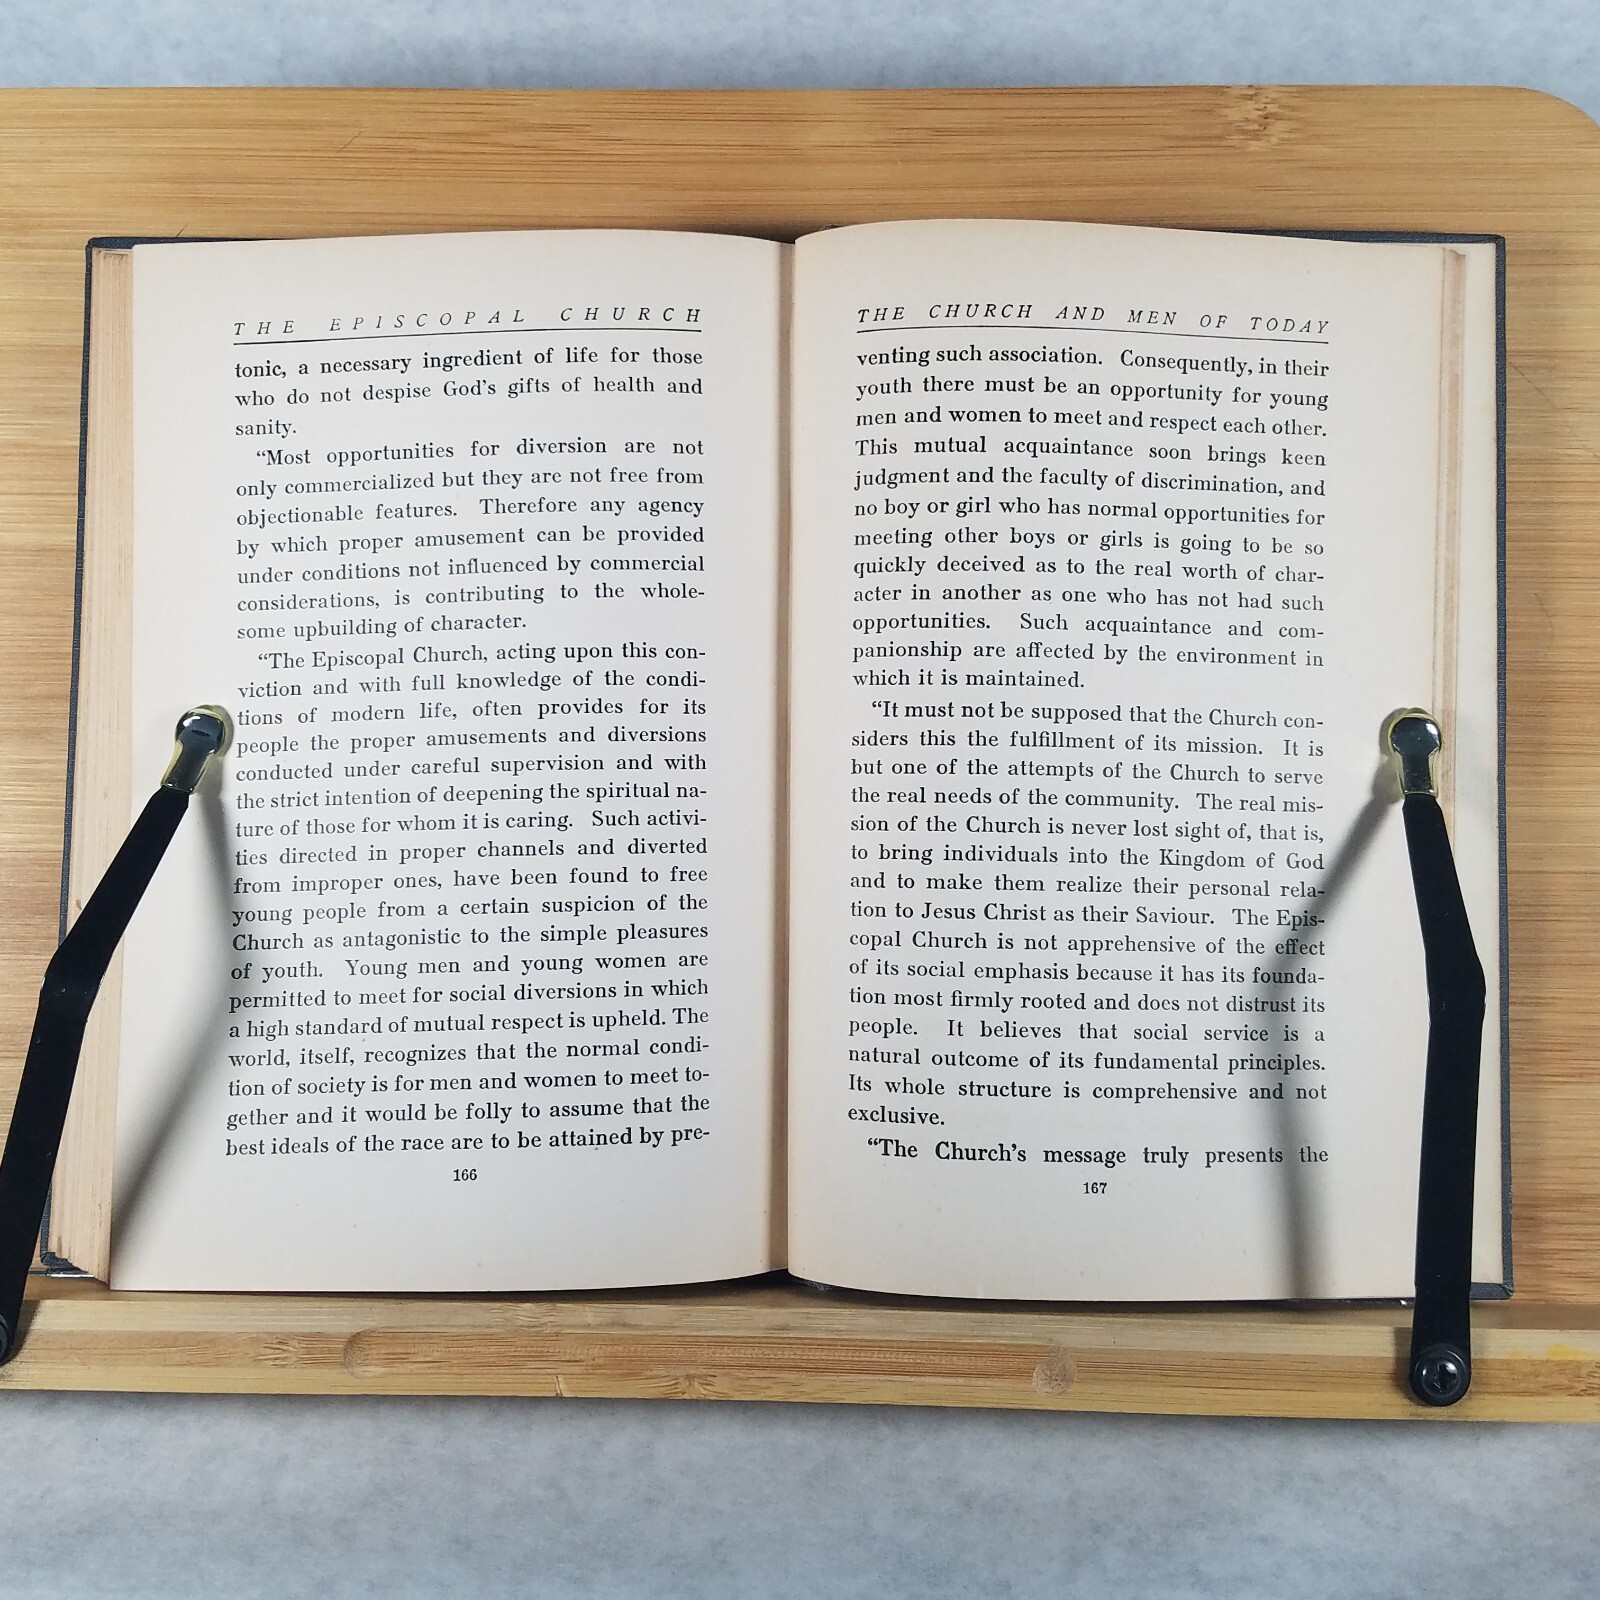 THE EPISCOPAL CHURCH
tonic, a necessary ingredient of life for those
who do not despise God's gifts of health and
sanity.
“Most opportunities for diversion are not
only commercialized but they are not free from
objectionable features. Therefore any agency
by which proper amusement can be provided
under conditions not influenced by commercial
considerations, is contributing to the whole-
some upbuilding of character.
“The Episcopal Church, acting upon this con-
viction and with full knowledge of the condi-
tions of modern life, often provides for its
people the proper amusements and diversions
conducted under careful supervision and with
the strict intention of deepening the spiritual na-
ture of those for whom it is caring. Such activi-
ties directed in proper channels and diverted
from improper ones, have been found to free
young people from a certain suspicion of the
Church as antagonistic to the simple pleasures
of youth. Young men and young women are
permitted to meet for social diversions in which
a high standard of mutual respect is upheld. The
world, itself, recognizes that the normal condi-
tion of society is for men and women to meet to-
gether and it would be folly to assume that the
best ideals of the race are to be attained by pre-
166
THE CHURCH AND MEN OF TODAY
venting such association. Consequently, in their
youth there must be an opportunity for young
men and women to meet and respect each other.
This mutual acquaintance soon brings keen
judgment and the faculty of discrimination, and
no boy or girl who has normal opportunities for
meeting other boys or girls is going to be so
quickly deceived as to the real worth of char-
acter in another as one who has not had such
opportunities. Such acquaintance and com-
panionship are affected by the environment in
which it is maintained.
“It must not be supposed that the Church con-
siders this the fulfillment of its mission. It is
but one of the attempts of the Church to serve
the real needs of the community. The real mis-
sion of the Church is never lost sight of, that is,
to bring individuals into the Kingdom of God
and to make them realize their personal rela-
tion to Jesus Christ as their Saviour. The Epis-
copal Church is not apprehensive of the effect
of its social emphasis because it has its founda-
tion most firmly rooted and does not distrust its
people. It believes that social service is a
natural outcome of its fundamental principles.
Its whole structure is comprehensive and not
exclusive.
“The Church's message truly presents the
167